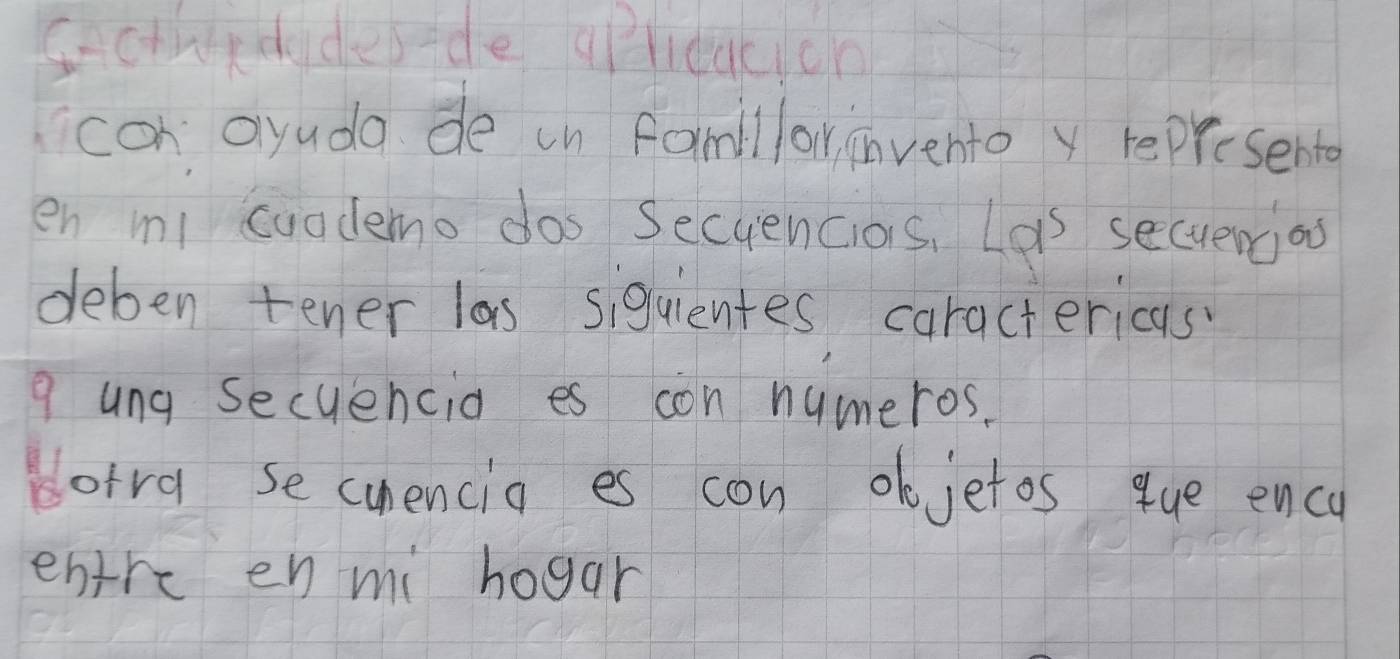 Actividades de aplicacion
con ayuda de un familiar, invento y represento
en mi cuaderno dos secuencias. Las secuencias
deben tener las siguientes caractericas.
a una secuencia es con números.
b otra secuencia es con objetos que encu
entre en mi hogar